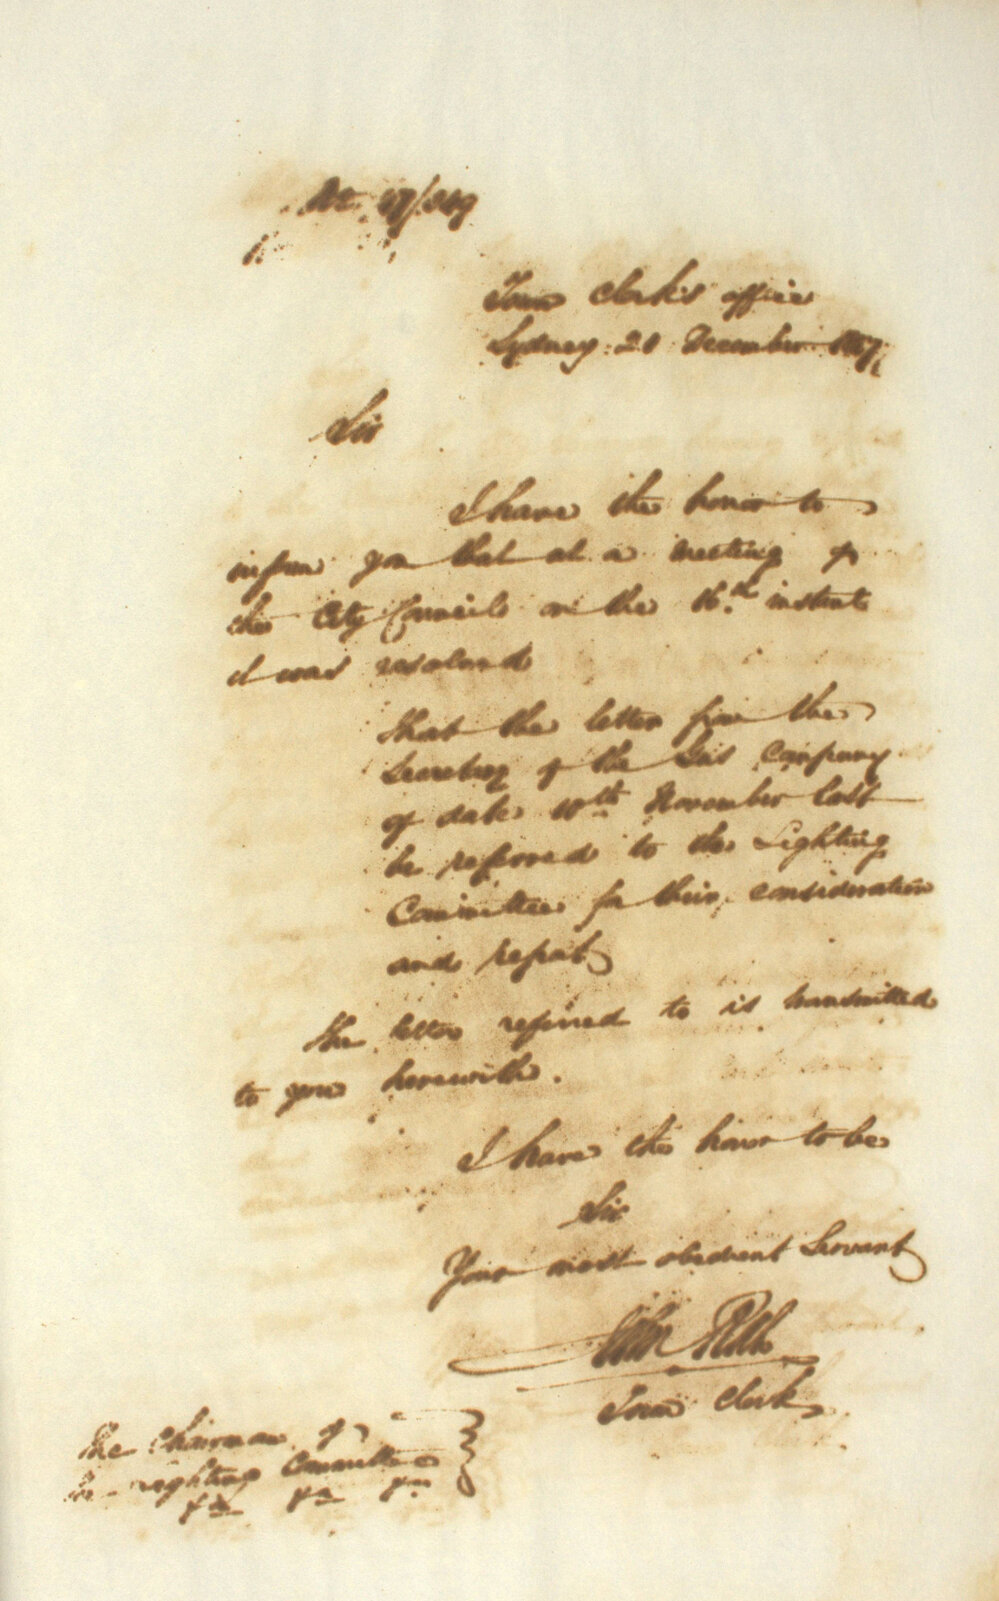 No. 47/349
Town Clerk's office
Sydney 21 December 1847
Sir
I have the honor to
inform you that at a meeting of
the City Council on the 16th instant
it was resolved
That the letter from the
Secretary of the Gas Company
of date 10th November last
be referred to the Lighting
Committee for their consideration
and report
The letter referred to is transmitted
to you herewith.
I have the honor to be
Sir
Your most obedient Servant
John Rae
Town Clerk
The Chairman of
the Lighting Committee
&c &c &c